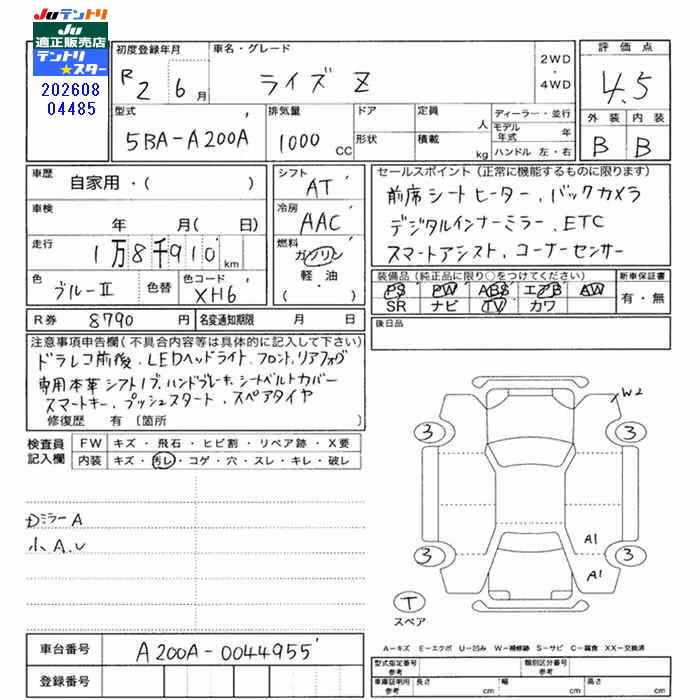 JUテントリ
JU
適正販売店
テントリ
★スター
202608
04485
初度登録年月
R2 6月
車名・グレード
ライズ Z
2WD
・
4WD
評価点
4.5
型式
5BA-A200A
排気量
1000 CC
ドア
形状
定員 人
積載 kg
ディーラー・並行
モデル年式 年
ハンドル 左・右
外装 内装
B B
車歴
自家用・( )
シフト
AT
セールスポイント(正常に機能するものに限ります)
前席シートヒーター、バックカメラ
デジタルインナーミラー、ETC
スマートアシスト、コーナーセンサー
車検
年 月( 日)
冷房
AAC
走行
1万8千910km
燃料
ガソリン
軽・油
( )
色
ブルーII
色替
色コード
XH6
装備品(純正品に限り○をつけてください)
PS PW ABS エアB AW
SR ナビ TV カワ
新車保証書
有・無
R券 8790円
名変通知期限 月 日
後日品
注意事項申告欄(不具合内容等は具体的に記入して下さい)
ドラレコ前後、LEDヘッドライト、フロント、リアフォグ
専用本革シフトノブ、ハンドブレーキ、シートベルトカバー
スマートキー、プッシュスタート、スペアタイヤ
修復歴 有〔箇所 〕
検査員
記入欄
FW キズ・飛石・ヒビ割・リペア跡・X要
内装 キズ・汚レ・コゲ・穴・スレ・キレ・破レ
DミラーA
小A.U
W2
3 3
3 3
A1
A1
T
スペア
A-キズ E-エクボ U-凹み W-補修跡 S-サビ C-腐食 XX-交換済
車台番号 A200A-0044955
登録番号
型式指定番号
参考
類別区分番号
参考
車庫証明用
参考
長さ cm 幅 cm 高さ cm